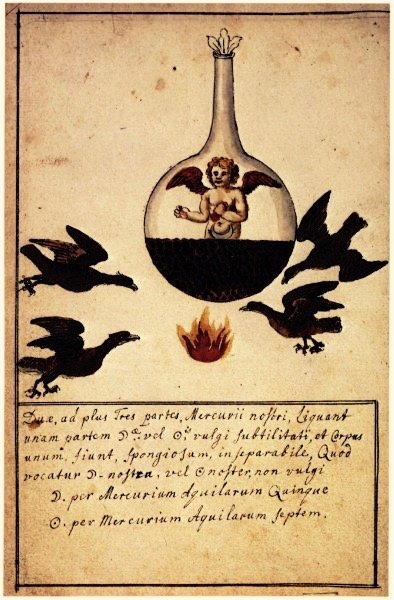 Duæ, ad plus Tres partes, Mercurii nostri, liquant
unam partem D.æ vel ☉.is vulgi subtilitati, et Corpus
unum, fiunt, Spongiosum, inseparabile, Quod
vocatur D- nostra, vel ☉ noster, non vulgi
D. per Mercurium Aquilarum Quinque
☉. per Mercurium Aquilarum septem.